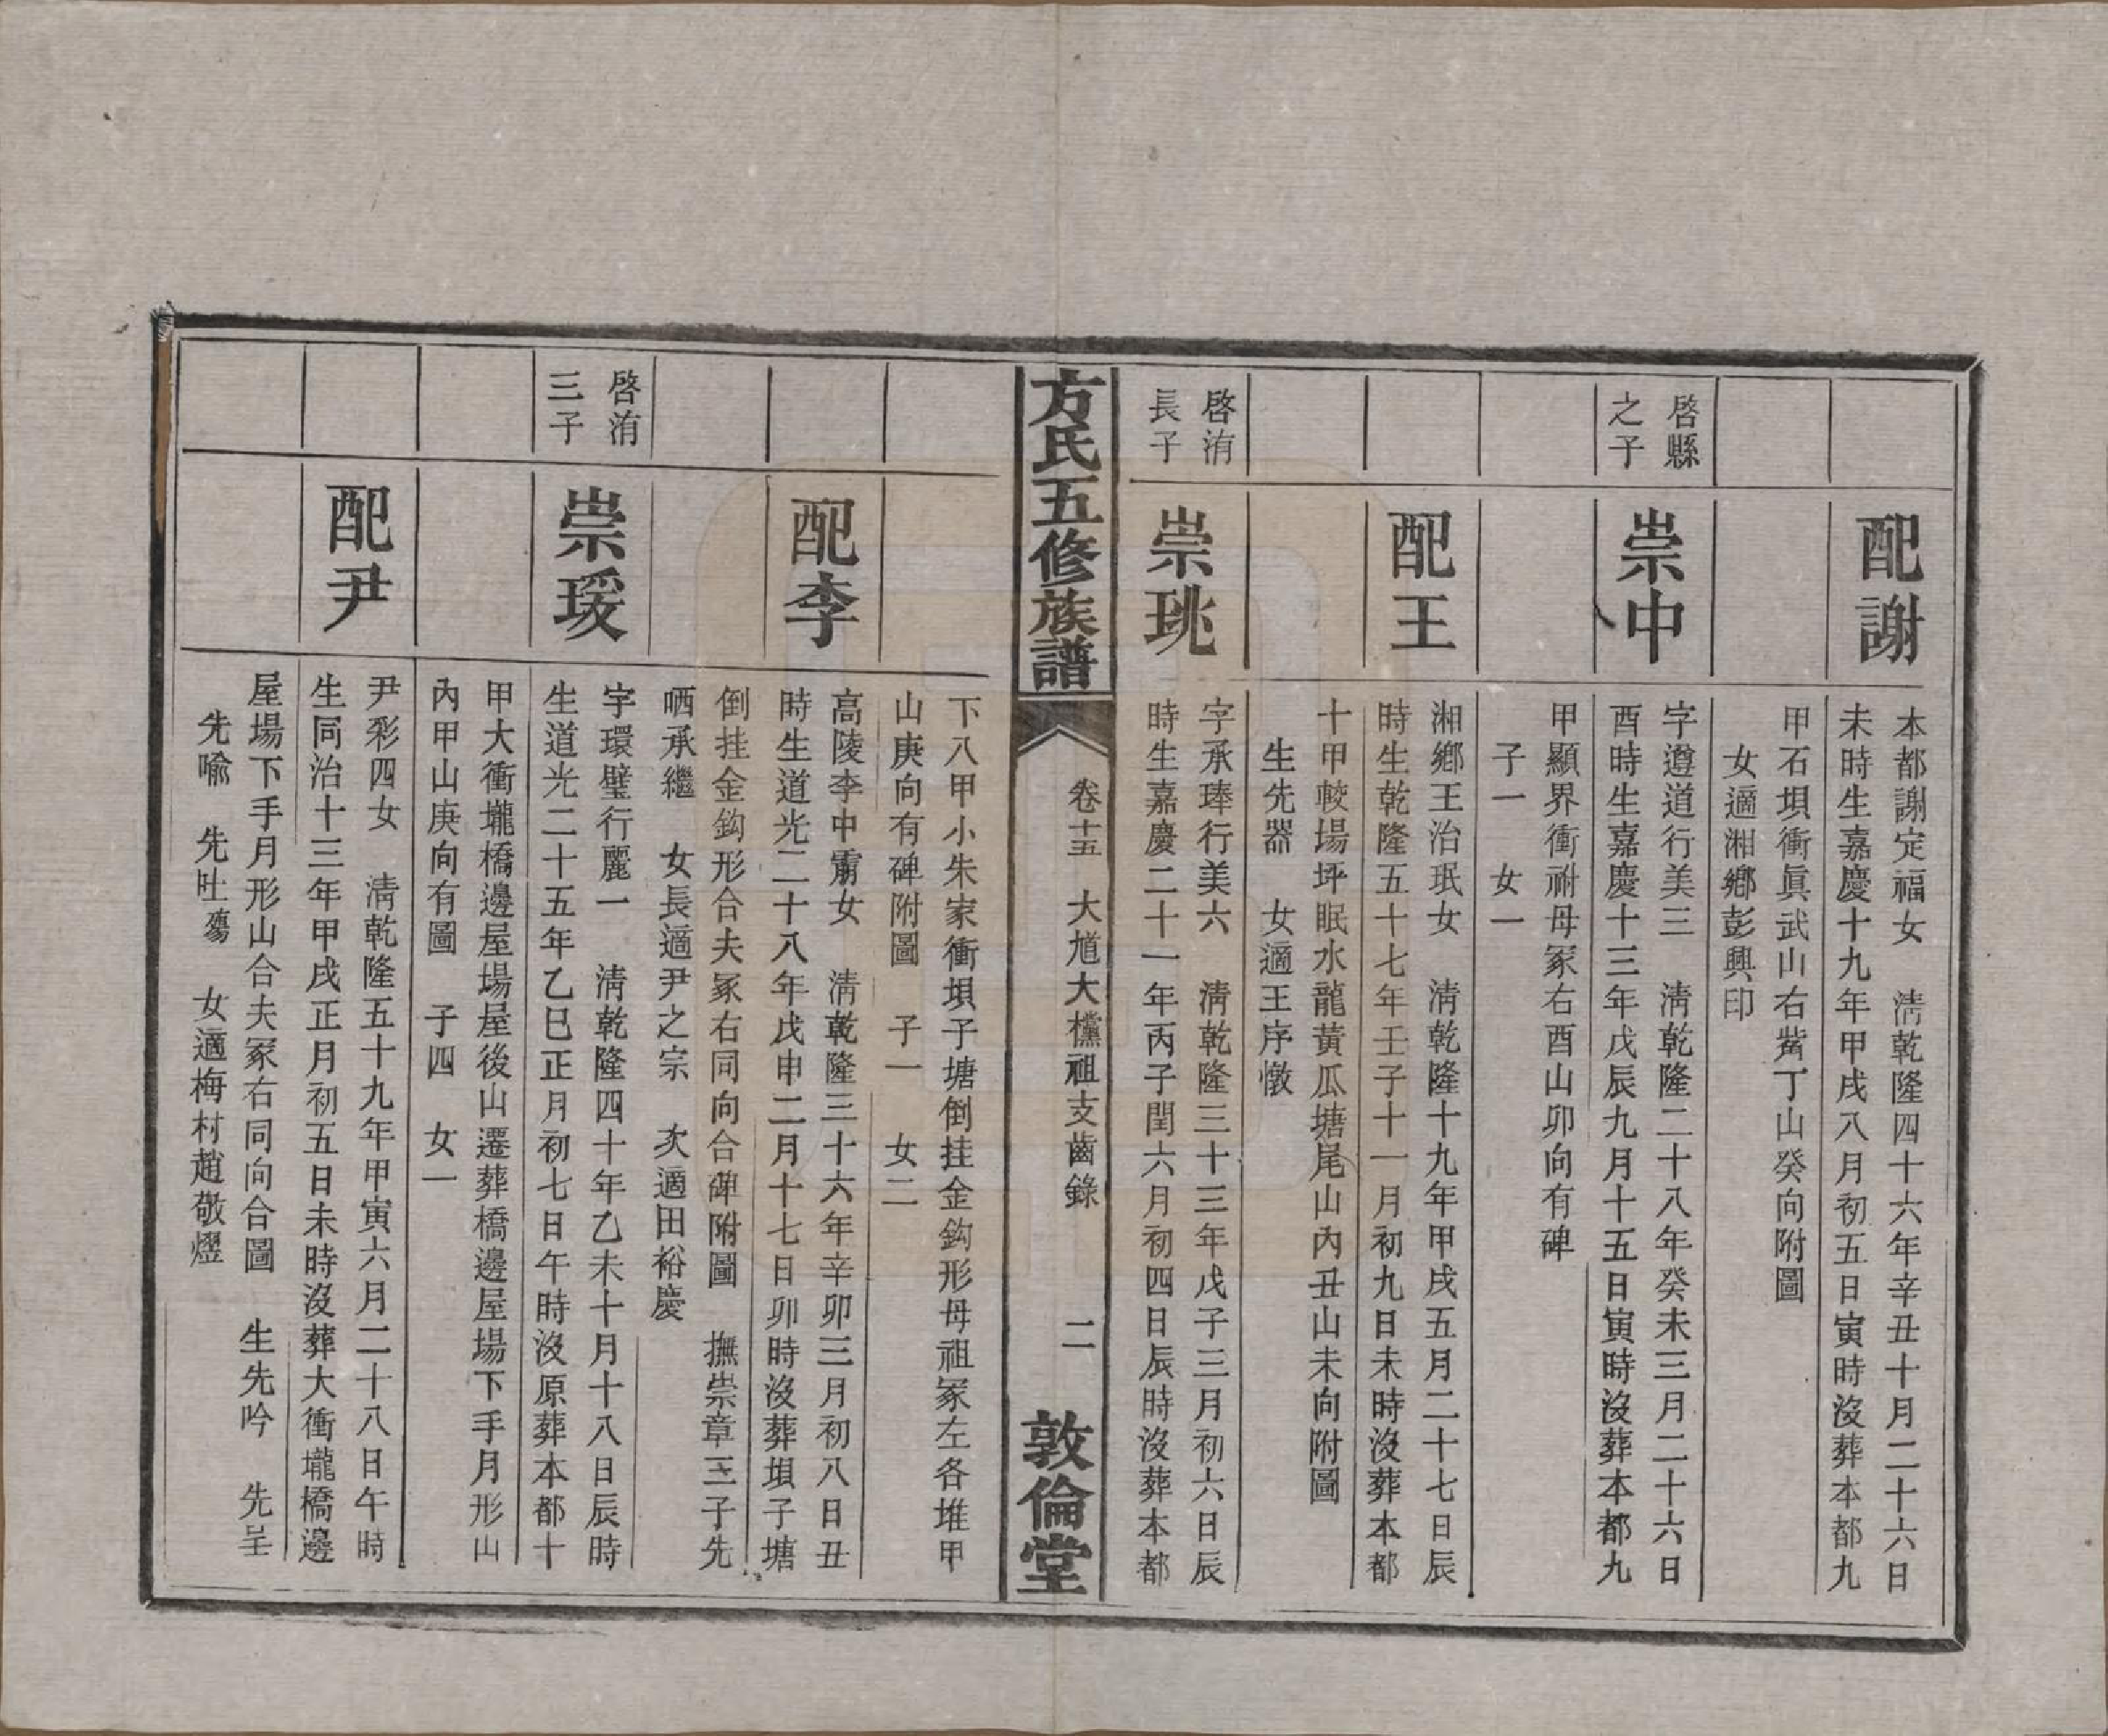 配謝
本都謝定福女　淸乾隆四十六年辛丑十月二十六日
未時生嘉慶十九年甲戌八月初五日寅時沒葬本都九
甲石垻衝眞武山右觜丁山癸向附圖
女適湘鄉彭興印
啓縣
之子
崇中
字遵道行美三　淸乾隆二十八年癸未三月二十六日
酉時生嘉慶十三年戊辰九月十五日寅時沒葬本都九
甲顯界衝祔母冢右酉山卯向有碑
子一　女一
配王
湘鄉王治珉女　淸乾隆十九年甲戌五月二十七日辰
時生乾隆五十七年壬子十一月初九日未時沒葬本都
十甲較場坪眠水龍黃瓜塘尾山內丑山未向附圖
生先器　女適王序燉
啓洧
長子
崇珧
字承琫行美六　淸乾隆三十三年戊子三月初六日辰
時生嘉慶二十一年丙子閏六月初四日辰時沒葬本都
方氏五修族譜
卷十五　大尯大欓祖支齒錄　二
敦倫堂
下八甲小朱家衝垻子塘倒挂金鈎形母祖冢左各堆甲
山庚向有碑附圖　子一　女二
配李
高陵李中霌女　淸乾隆三十六年辛卯三月初八日丑
時生道光二十八年戊申二月十七日卯時沒葬垻子塘
倒挂金鈎形合夫冢右同向合碑附圖　撫崇章三子先
哂承繼　女長適尹之宗　次適田裕慶
啓洧
三子
崇瑗
字環璧行麗一　淸乾隆四十年乙未十月十八日辰時
生道光二十五年乙巳正月初七日午時沒原葬本都十
甲大衝壠橋邊屋場屋後山遷葬橋邊屋場下手月形山
內甲山庚向有圖　子四　女一
配尹
尹彩四女　淸乾隆五十九年甲寅六月二十八日午時
生同治十三年甲戌正月初五日未時沒葬大衝壠橋邊
屋場下手月形山合夫冢右同向合圖　生先吟　先呈
先喩　先吐殤　女適梅村趙敬熤